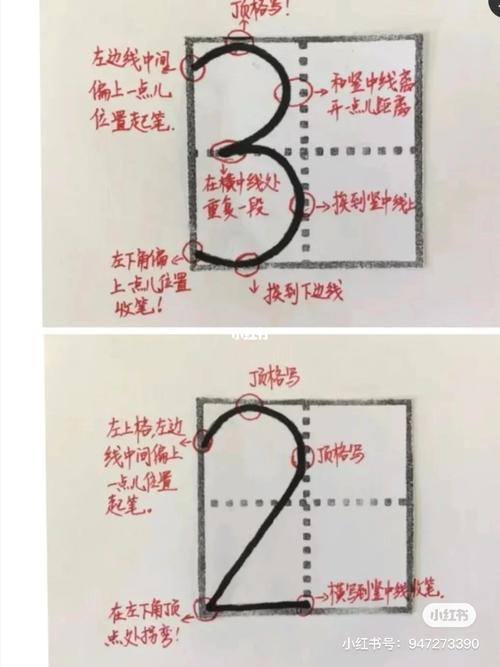 顶格写！
左边线中间
偏上一点儿
位置起笔.
和竖中线离
开一点儿距离
3
在横中线处
重复一段
挨到竖中线上
左下角偏
上一点儿位置
收笔！
挨到下边线
小红书
顶格写
左上格,左边
线中间偏上
一点儿位置
起笔。
顶格写
2
横写到竖中线收笔.
在左下角顶
点处拐弯！
小红书
小红书号：947273390